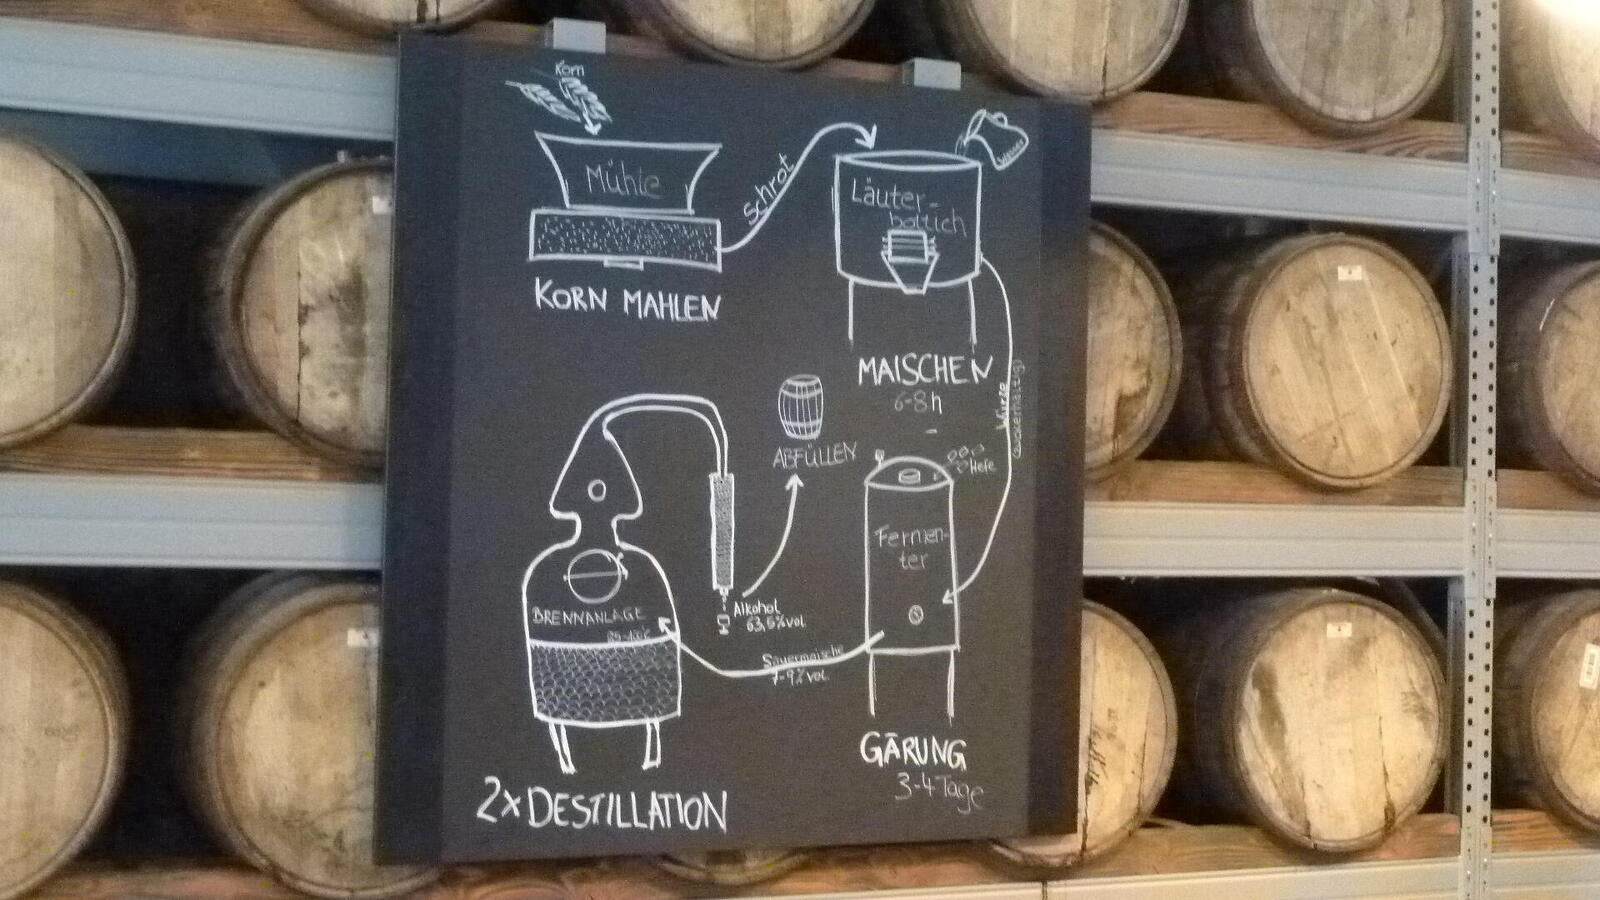 Korn
Mühle
KORN MAHLEN
Schrot
Wasser
Läuter-
bottich
MAISCHEN
6-8h
Würze
(zuckerhaltig)
Hefe
Fermen-
ter
GÄRUNG
3-4 Tage
Sauermaische
7-9% vol.
BRENNANLAGE
2x DESTILLATION
Alkohol
63,5% vol
ABFÜLLEN